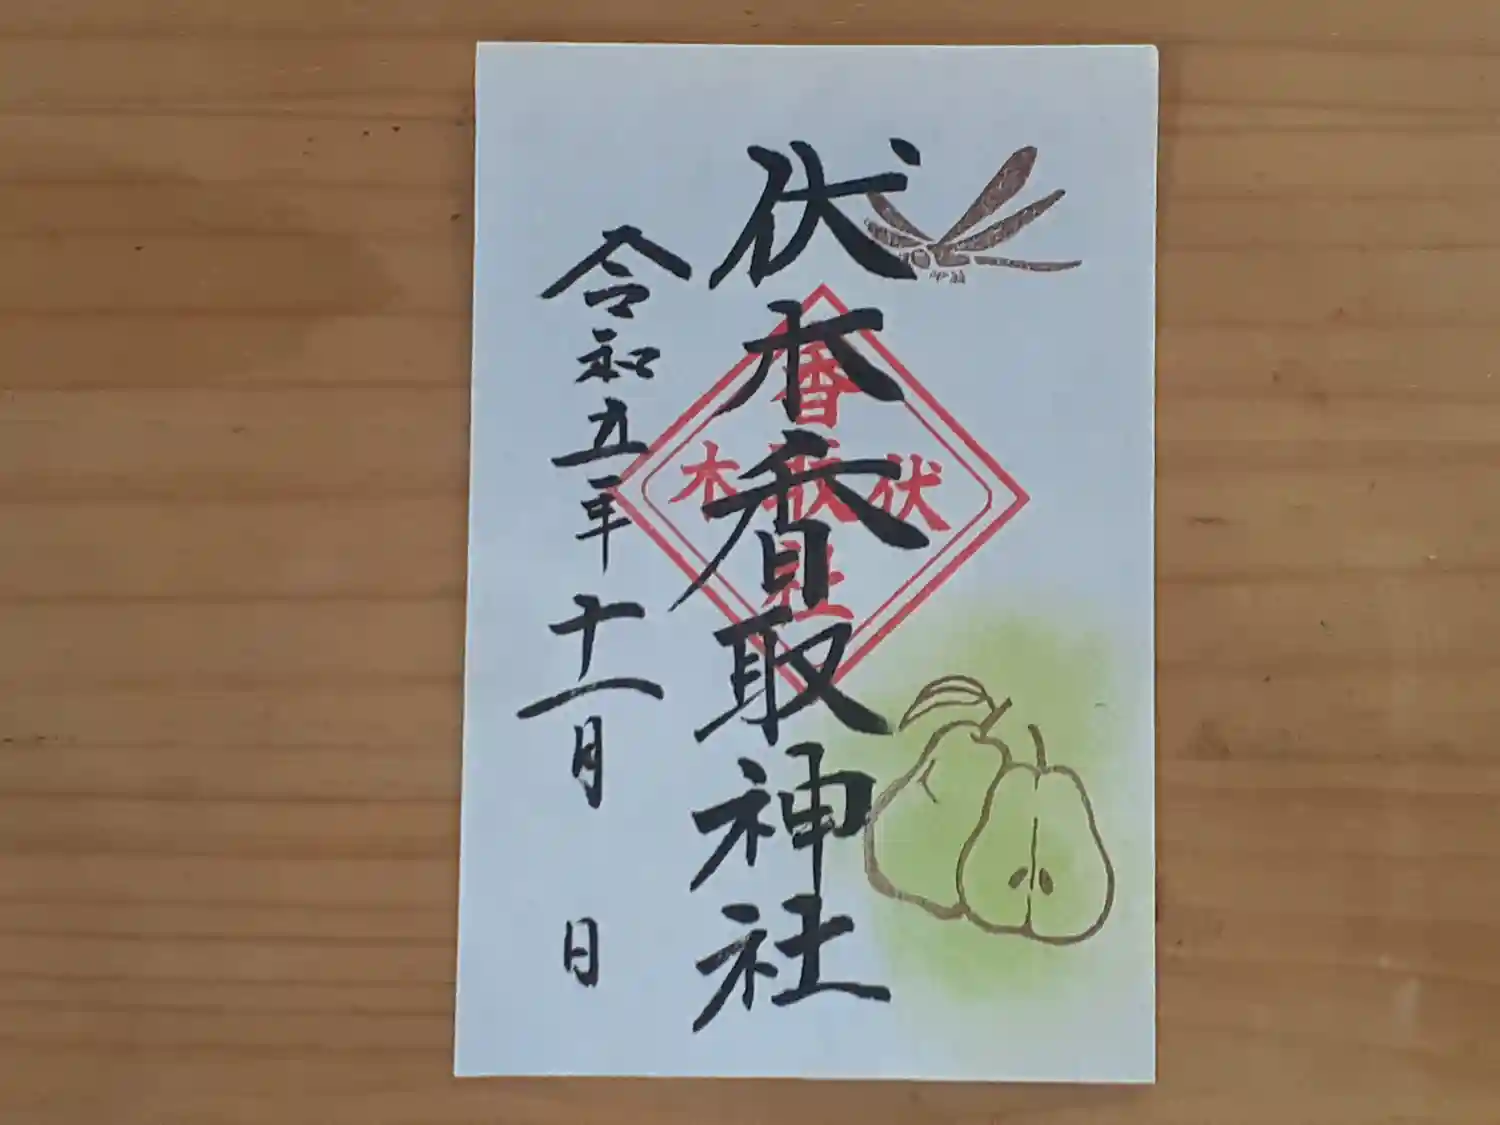 伏木香取神社
伏木
香取社
令和五年十一月 日